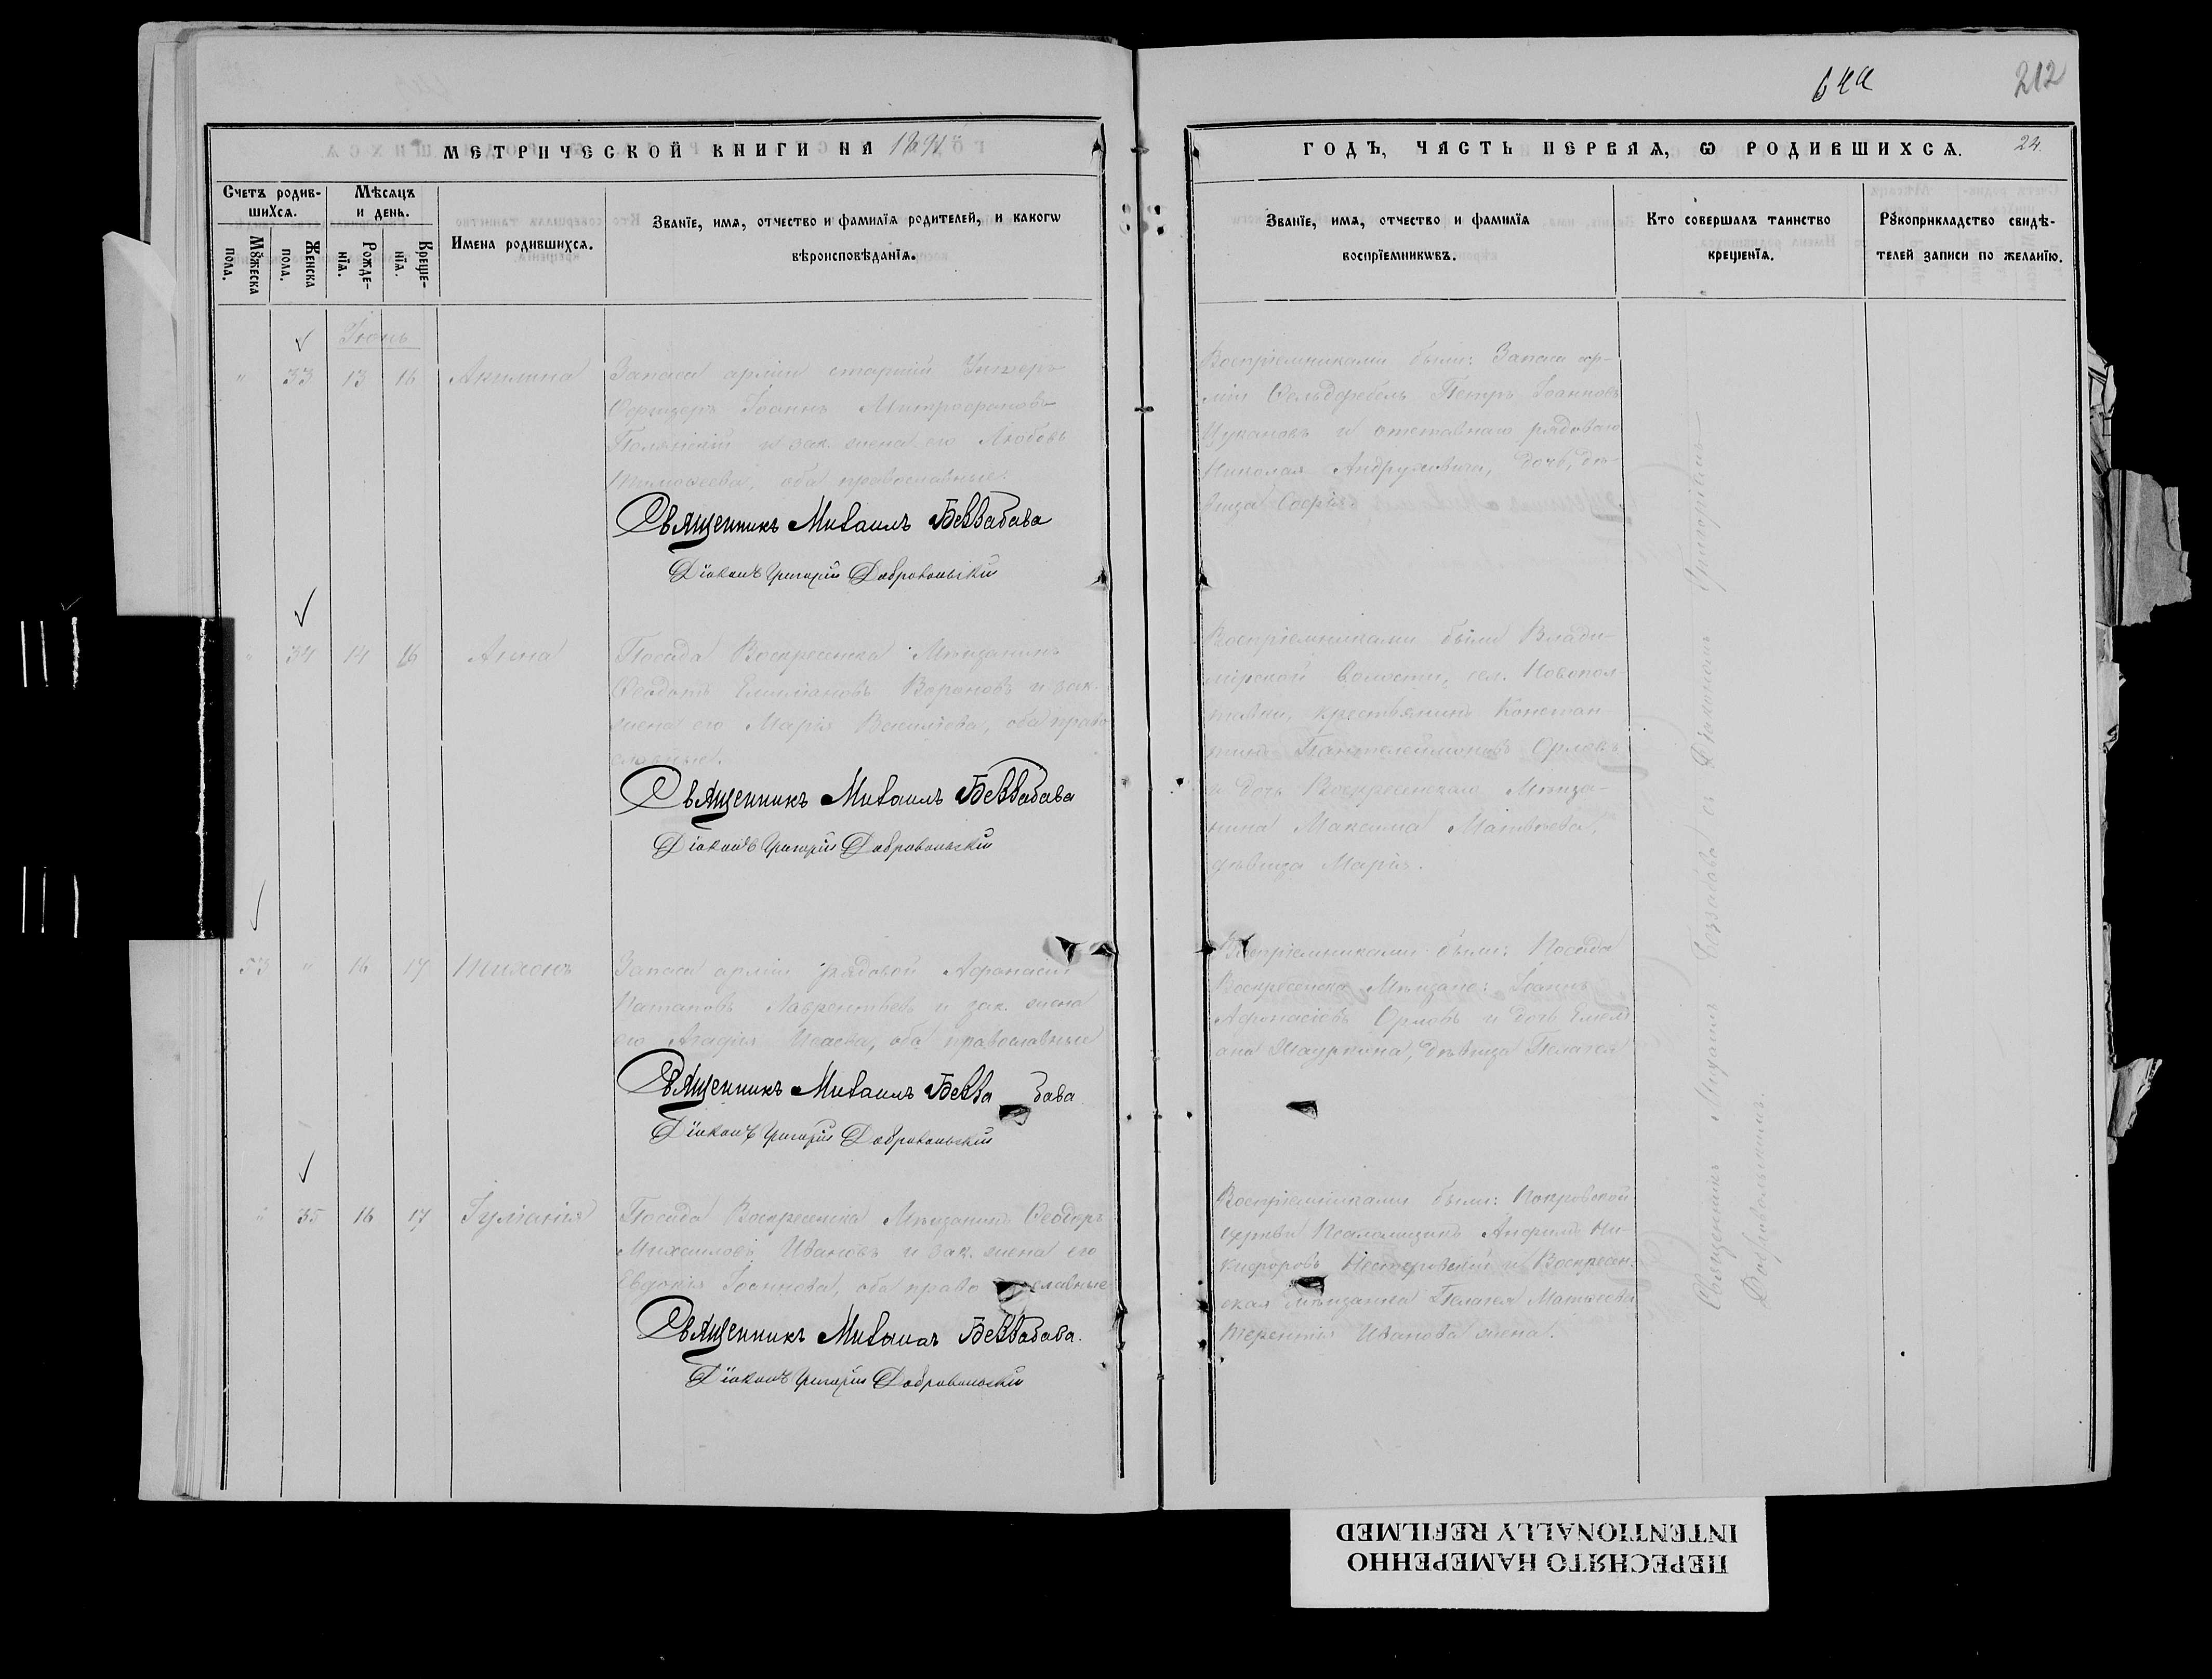 64а
212
МЕТРИЧЕСКОЙ КНИГИ НА 1891
ГОДЪ, ЧАСТЬ ПЕРВАЯ, Ѡ РОДИВШИХСѦ.
24.
Счетъ родив-
шихсѧ.
Мѣсѧцъ
и день.
Мꙋжеска
пола.
Женска
пола.
Рожде-
нїѧ.
Креще-
нїѧ.
Имена родившихсѧ.
Званїе, имѧ, отчество и фамилїѧ родителей, и какогѡ
вѣроисповѣданїѧ.
Званїе, имѧ, отчество и фамилїѧ
воспрїемникѡвъ.
Кто совершалъ таинство
крещенїѧ.
Рꙋкоприкладство свидѣ-
телей записи по желанїю.
Іюнь
" 33 13 16 Акилина
Запаса арміи старшій Унтеръ-
Офицеръ Іоаннъ Митрофановъ
Полянскій и зак. жена его Любовь
Тимоѳеева, оба православные.
Священникъ Михаилъ Беззабава
Діаконъ Григорій Добровольскій
Воспріемниками были: Запаса ар-
міи Фельдфебель Петръ Іоанновъ
Цукановъ и отставнаго рядоваго
Николая Андруловича, дочь, дѣ-
вица Софія.
34 14 16 Анна
Посада Воскресенска Мѣщанинъ
Ѳеодотъ Емиліановъ Вороновъ и зак.
жена его Марія Василіева, оба право
славные.
Священникъ Михаилъ Беззабава
Діаконъ Григорій Добровольскій
Воспріемниками были Влади-
мірской Волости, сел. Новопол-
тавки, крестьянинъ Констан-
тинъ Пантелеимоновъ Орловъ
и дочь Воскресенскаго Мѣща-
нина Максима Матвѣева,
дѣвица Марія.
53 " 16 17 Тихонъ
Запаса арміи рядовой Афанасій
Потаповъ Лаврентьевъ и зак. жена
его Агафія Исаева, оба православные
Священникъ Михаилъ Безза бава
Діаконъ Григорій Добровольскій
Воспріемниками были: Посада
Воскресенска Мѣщане: Іоаннъ
Афонасіевъ Орловъ и дочь Емелі
ана дѣвица Пелагея
" 35 16 17 Іуліанія
Посада Воскресенска Мѣщанинъ Ѳеодоръ
Михаиловъ Ивановъ и зак. жена его
Евдокія Іоаннова, оба право славные
Священникъ Михаилъ Беззабава.
Діаконъ Григорій Добровольскій
Воспріемниками были: Покровской
церкви Псаломщикъ Анфимъ Ни-
кифоровъ Нестеровскій и Воскресен-
ская мѣщанка Пелагея Матвеева
Терентія Иванова жена.
Священникъ Михаилъ Беззабава съ Діакономъ Григоріемъ
Добровольскимъ.
ПЕРЕСНЯТО НАМЕРЕННО
INTENTIONALLY REFILMED